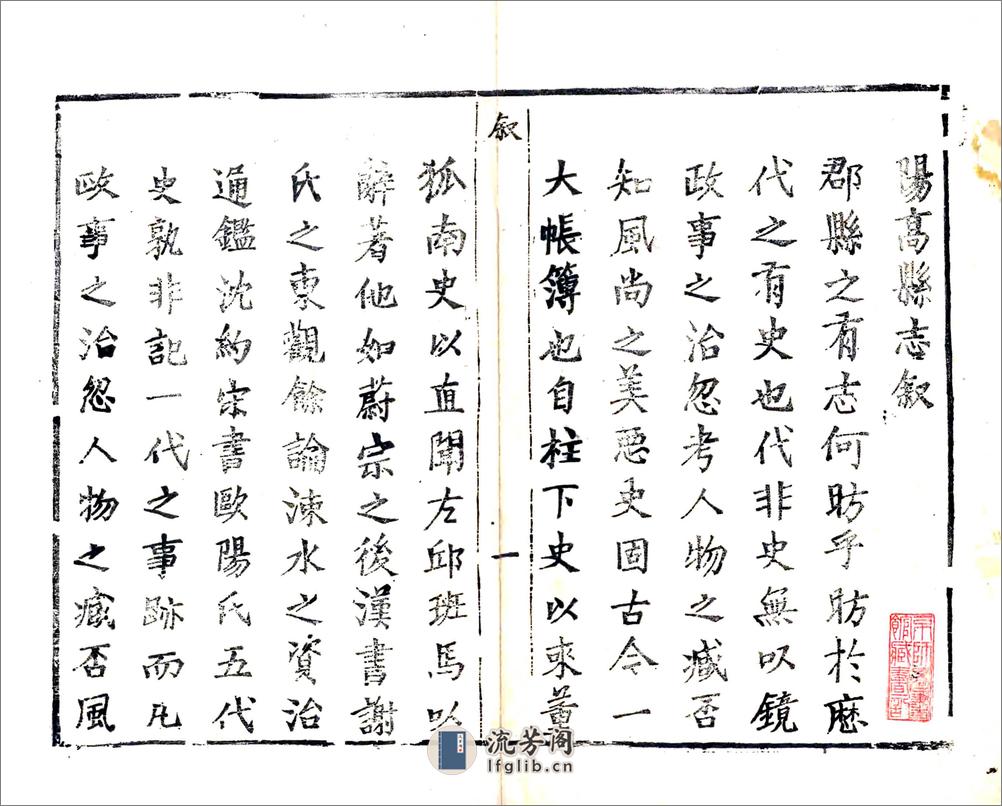 陽高縣志叙
郡縣之有志何昉乎昉於歷
代之有史也代非史無以鏡
政事之治忽考人物之臧否
知風尚之美惡史固古今一
大帳簿也自柱下史以來董
叙
一
狐南史以直聞左邱班馬以
辭著他如蔚宗之後漢書謝
氏之東觀餘論涑水之資治
通鑑沈約宋書歐陽氏五代
史孰非記一代之事跡而凡
政事之治忽人物之臧否風
流芳阁
lfglib.cn